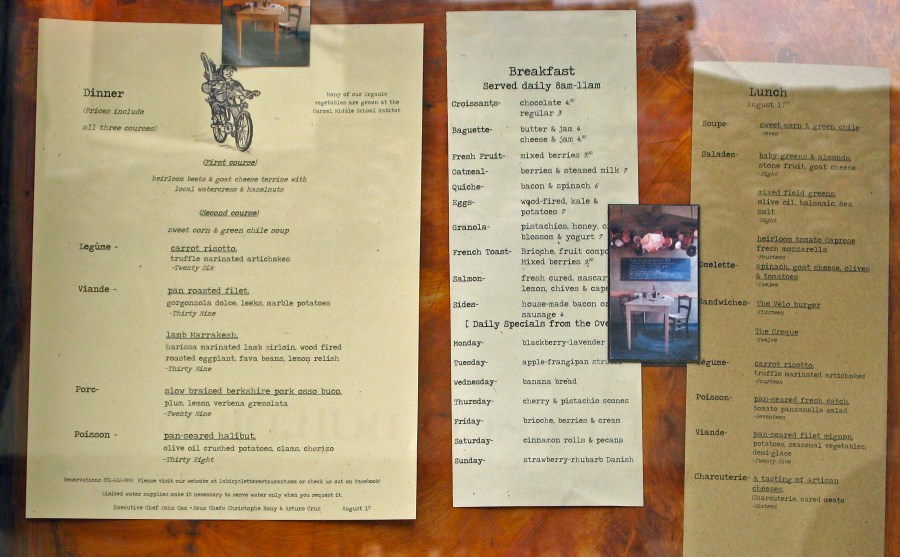 Dinner
(Prices include
all three courses)
Many of our Organic
vegetables are grown at the
Carmel Middle School Habitat
(First course)
heirloom beets & goat cheese terrine with
local watercress & hazelnuts
(Second course)
sweet corn & green chile soup
Legûme - carrot risotto,
truffle marinated artichokes
-Twenty Six
Viande - pan roasted filet,
gorgonzola dolce, leeks, marble potatoes
-Thirty Nine
lamb Marrakesh,
harissa marinated lamb sirloin, wood fired
roasted eggplant, fava beans, lemon relish
-Thirty Nine
Porc- slow braised berkshire pork osso buco,
plum, lemon verbena gremolata
-Twenty Nine
Poisson - pan-seared halibut,
olive oil crushed potatoes, clams, chorizo
-Thirty Eight
Reservations Please visit our website at labicycletterestaurant.com or check us out on Facebook!
Limited water supplies make it necessary to serve water only when you request it.
Executive Chef John Cox • Sous Chefs Christophe Bony & Arturo Cruz August 17
Breakfast
Served daily 8am-11am
Croissants- chocolate 4
regular 3
Baguette- butter & jam 4
cheese & jam 4
Fresh Fruit- mixed berries
Oatmeal- berries & steamed milk 7
Quiche- bacon & spinach 6
Eggs- wood-fired, kale &
potatoes 7
Granola- pistachios, honey, o
blossom & yogurt 7
French Toast- Brioche, fruit compo
Mixed berries
Salmon- fresh cured, mascar
lemon, chives & cape
Sides- house-made bacon or
sausage 4
[ Daily Specials from the Ove
Monday- blackberry-lavender
Tuesday- apple-frangipan
Wednesday- banana bread
Thursday- cherry & pistachio scones
Friday- brioche, berries & cream
Saturday- cinnamon rolls & pecans
Sunday- strawberry-rhubarb Danish
Lunch
August 17
Soupe- sweet corn & green chile
-Seven
Salades- baby greens & almonds,
stone fruit, goat cheese
-Eight
mixed field greens,
olive oil, balsamic, sea
salt
-Eight
heirloom tomato Caprese
fresh mozzarella
-Fourteen
Omelette- spinach, goat cheese, olives
& tomatoes
-Twelve
andwiches- The Velo burger
-Thirteen
The Croque
-Twelve
égume- carrot risotto,
truffle marinated artichokes
-Fourteen
Poisson- pan-seared fresh catch,
tomato panzanella salad
-Seventeen
Viande- pan-seared filet mignon,
potatoes, seasonal vegetables,
demi-glace
-Twenty Five
Charcuterie- a tasting of artisan
cheeses,
Charcuterie, cured meats
-Sixteen